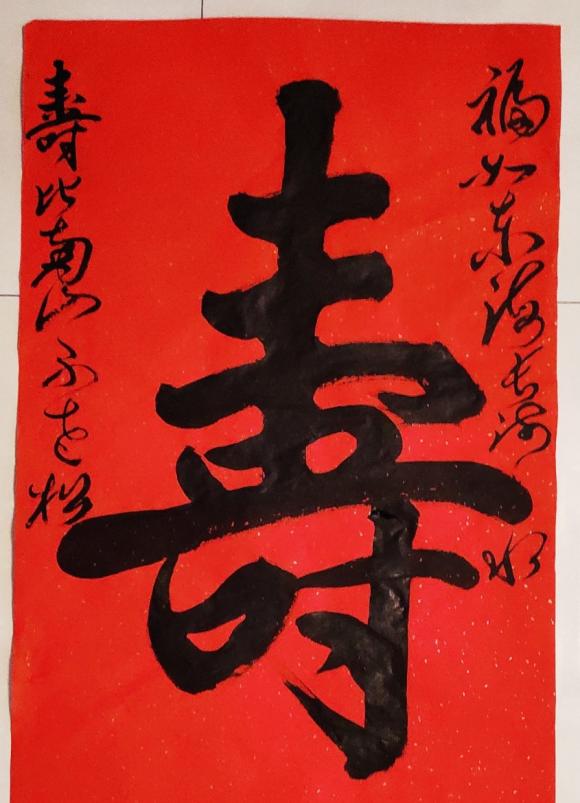 福如东海长流水
壽
壽比南山不老松